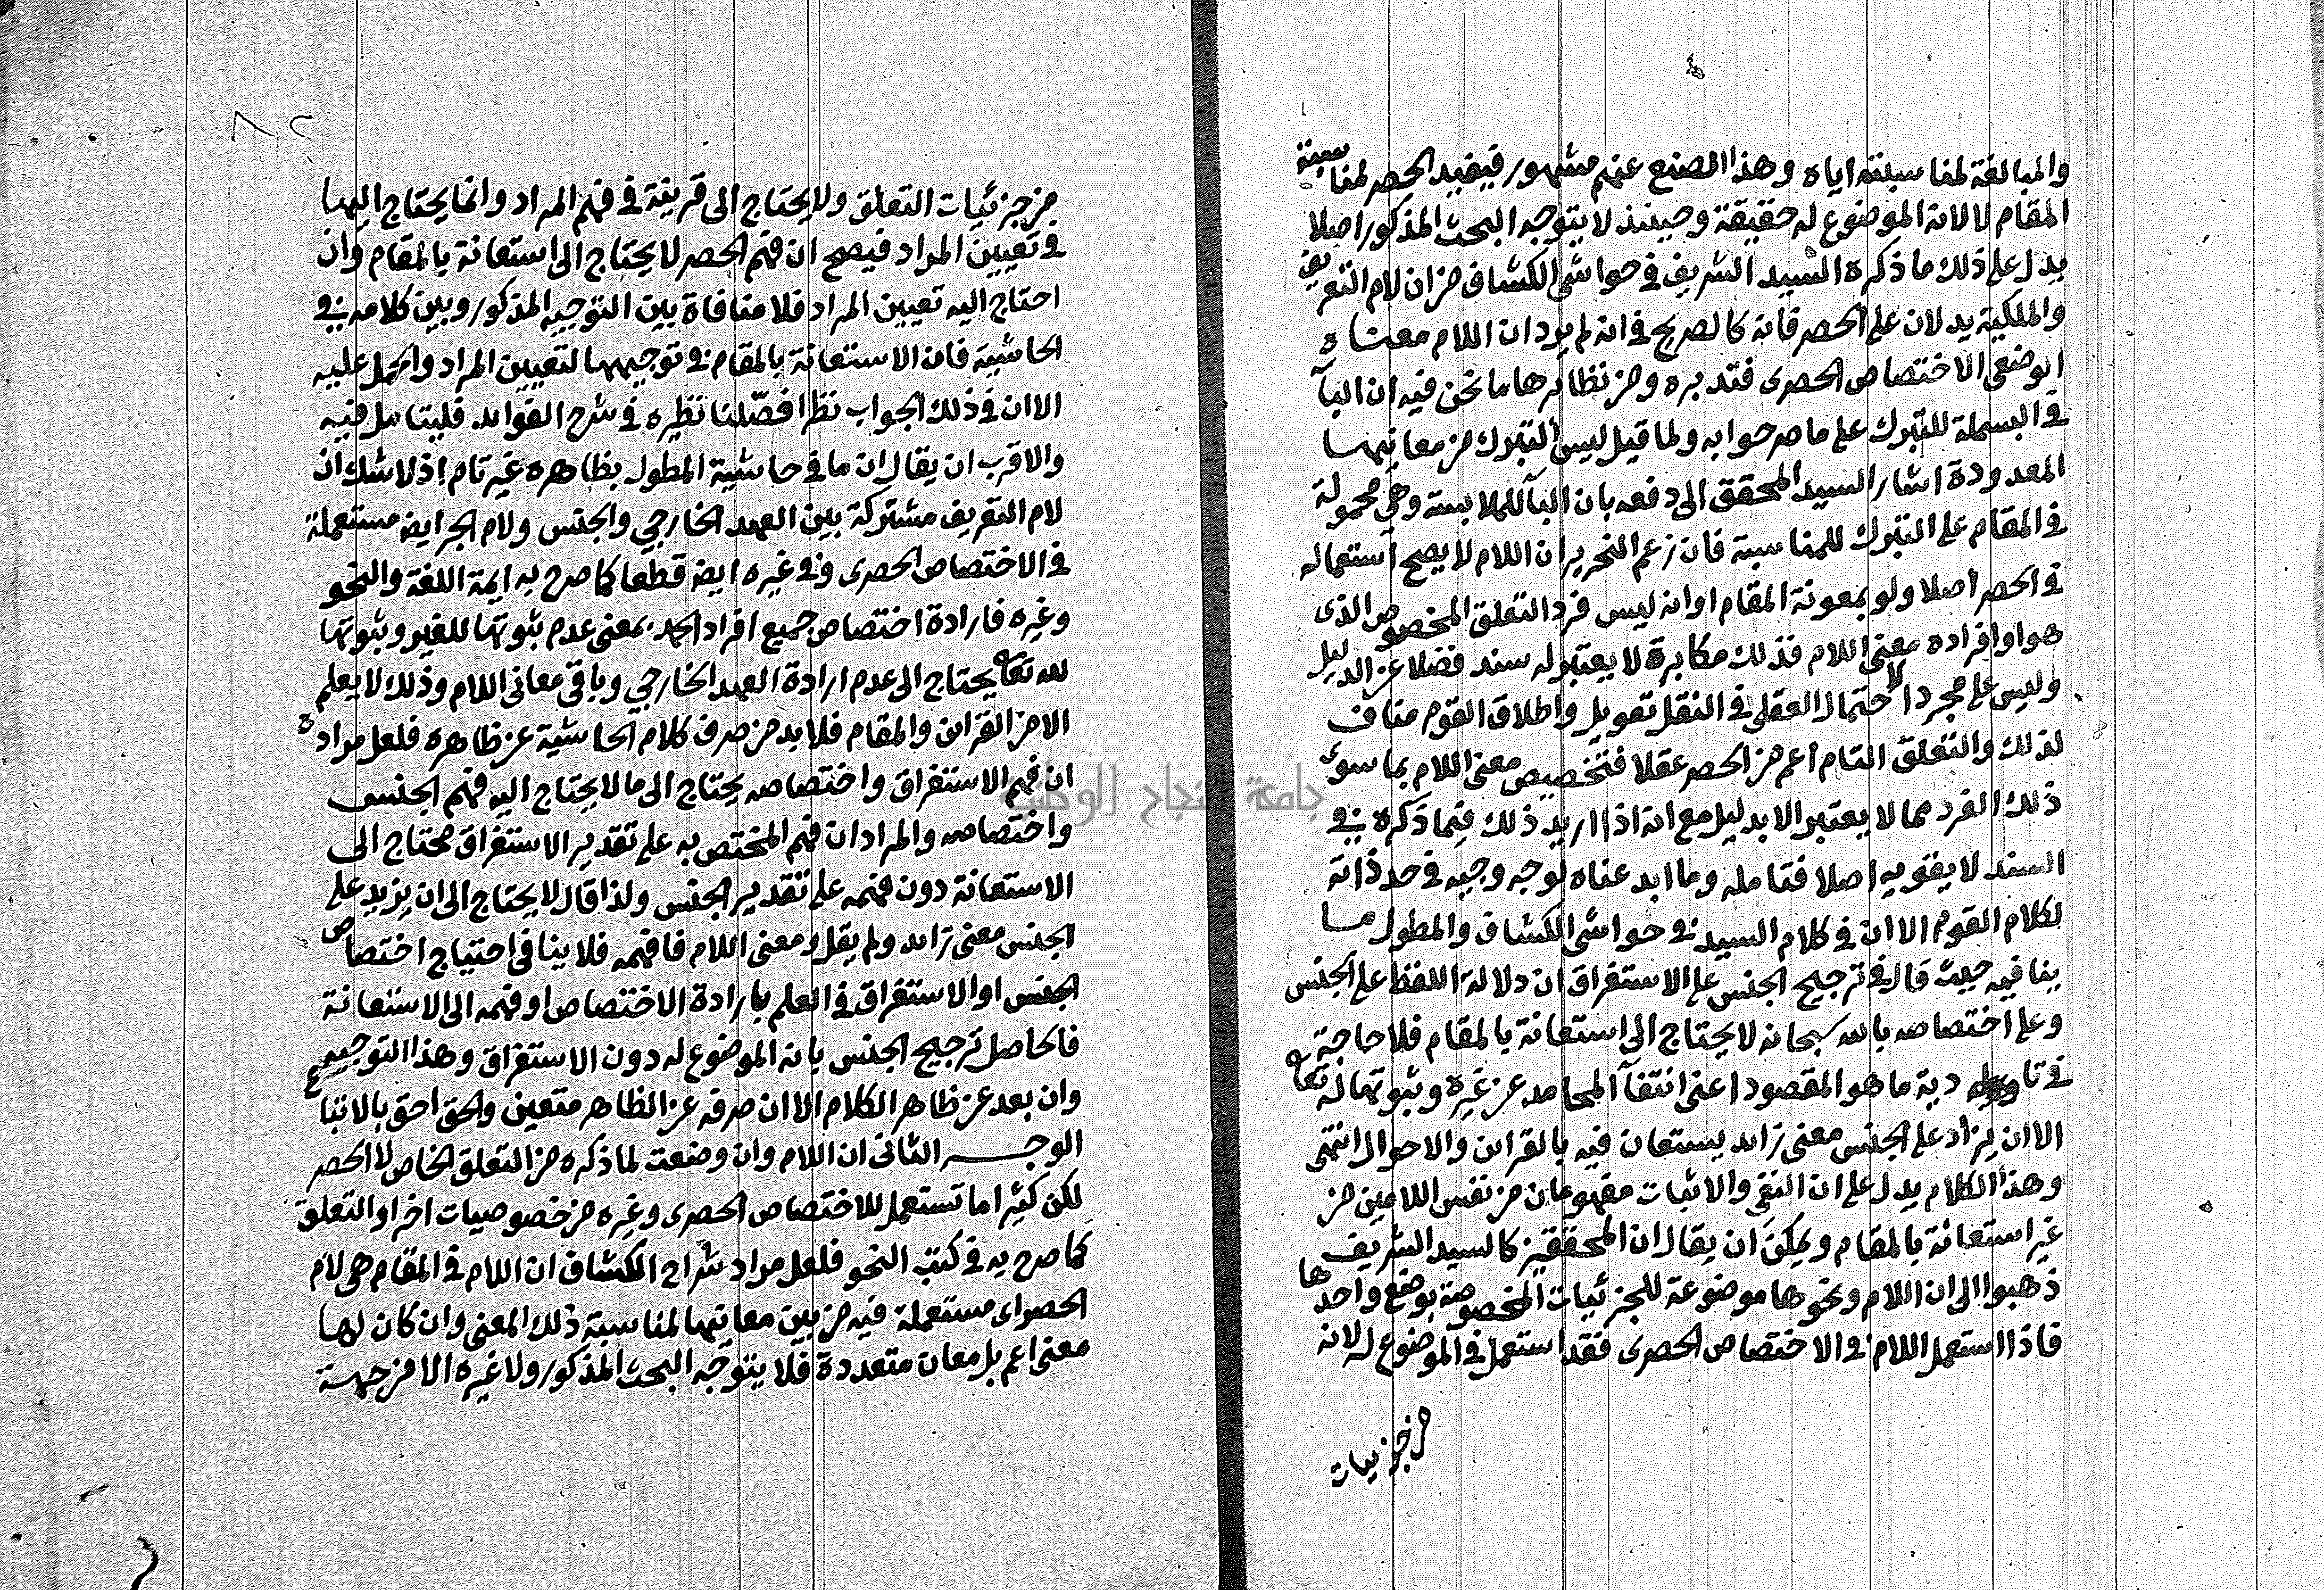 والمبالغة لمناسبته اياه وهذا الصنع عنهم مشهور فيفيد الحصر لمناسبته
المقام لا لانه الموضوع له حقيقة وحينئذ لا يتوجه البحث المذكور اصلا
يدل على ذلك ما ذكره السيد الشريف في حواشي الكشاف من ان لام التعريف
والملكية يدلان على الحصر فانه كالصريح في انه لم يرد ان اللام معناه
الوضعي الاختصاص الحصرى فتدبره ومن نظائرها ما نحن فيه ان البآ
في البسملة للتبرك على ما صرحوا به ولما قيل ليس التبرك من معانيها
المعدودة اشار السيد المحقق الى دفعه بان البآ للملابسة وهي محمولة
في المقام على التبرك للمناسبة فان زعم النحرير ان اللام لا يصح استعماله
في الحصر اصلا ولو بمعونة المقام او انه ليس فرد التعلق المخصوص الذى
هو او افراده معنى اللام فذلك مكابرة لا يعتبر له سند فضلا عن الدليل
وليس على مجرد الاحتمال العقلي في النقل تعويل واطلاق القوم مناف
لذلك والتعلق التام اعم من الحصر عقلا فتخصيص معنى اللام بما سوى
ذلك الفرد مما لا يعتبر الا بدليل مع انه اذا اريد ذلك فيما ذكره في
السند لا يفويه اصلا فتامله وما ابدعناه لوجه وجيه في حد ذاته
لكلام القوم الا ان في كلام السيد في حواشي الكشاف والمطول ما
ينافيه حيث قال في ترجيح الجنس على الاستغراق ان دلالة اللفظ على الجنس
وعلى اختصاصه بالله سبحانه لا يحتاج الى استعانة بالمقام فلا حاجة
في تادية ما هو المقصود اعنى انتفآ المحامد عن غيره وثبوتها له تعا
الا ان يزاد على الجنس معنى زائد يستعان فيه بالقراين والاحوال انتهى
وهذا الكلام يدل على ان النفي والاثبات مفهومان من نفس اللامين من
غير استعانة بالمقام ويمكن ان يقال ان المحققين كالسيد الشريف
ذهبوا الى ان اللام ونحوها موضوعة للجزئيات المخصوصة بوضع واحد ها
فاذا استعمل اللام في الاختصاص الحصرى فقد استعمل في الموضوع له لانه
من جزييات
من جزئيات التعلق ولا يحتاج الى قرينة في فهم المراد وانما يحتاج اليها
في تعيين المراد فيصح ان فهم الحصر لا يحتاج الى استعانة بالمقام وان
احتاج اليه تعيين المراد فلا منافاة بين التوجيه المذكور وبين كلامه في
الحاشية فان الاستعانة بالمقام في توجيهها لتعيين المراد والحمل عليه
الا ان في ذلك الجواب نظرا فصّلنا نظيره في شرح الفوايد فليتامل فيه
والاقرب ان يقال ان ما في حاشية المطول بظاهره غير تام اذ لا شك ان
لام التعريف مشتركة بين العهد الخارجي والجنس ولام الجر ايض مستعملة
في الاختصاص الحصرى وفي غيره ايض قطعا كما صرح به ايمة اللغة والنحو
وغيره فارادة اختصاص جميع افراد الحمد بمعنى عدم ثبوتها للغير وثبوتها
لله تعا يحتاج الى عدم ارادة العهد الخارجي وباقي معانى اللام وذلك لا يعلم
الا من القراين والمقام فلا بد من صرف كلام الحاشية عن ظاهره فلعل مراده
ان فهم الاستغراق واختصاصه يحتاج الى ما لا يحتاج اليه فهم الجنس
واختصاصه والمراد ان فهم المختص به على تقدير الاستغراق محتاج الى
الاستعانة دون فهمه على تقدير الجنس ولذا قال لا يحتاج الى ان يزيد على
الجنس معنى زائد ولم يقل ومعنى اللام فافهمه فلا ينافى احتياج اختصاص
الجنس او الاستغراق في العلم بارادة الاختصاص او فهمه الى الاستعانة
فالحاصل ترجيح الجنس بانه الموضوع له دون الاستغراق وهذا التوجيه
وان بعد عن ظاهر الكلام الا ان صرفه عن الظاهر متعين والحق احق بالاتباع
الوجه الثانى ان اللام وان وضعت لما ذكره من التعلق الخاص لا الحصر
لكن كثيرا ما تستعمل للاختصاص الحصرى وغيره من خصوصيات اخر او التعلق
كما صرح به في كتب النحو فلعل مراد شراح الكشاف ان اللام في المقام هي لام
الحصر اى مستعملة فيه من بين معانيها لمناسبة ذلك المعنى وان كان لها
معنى اعم بل معان متعددة فلا يتوجه البحث المذكور ولا غيره الا من جهة
جامعة النجاح الوطنية